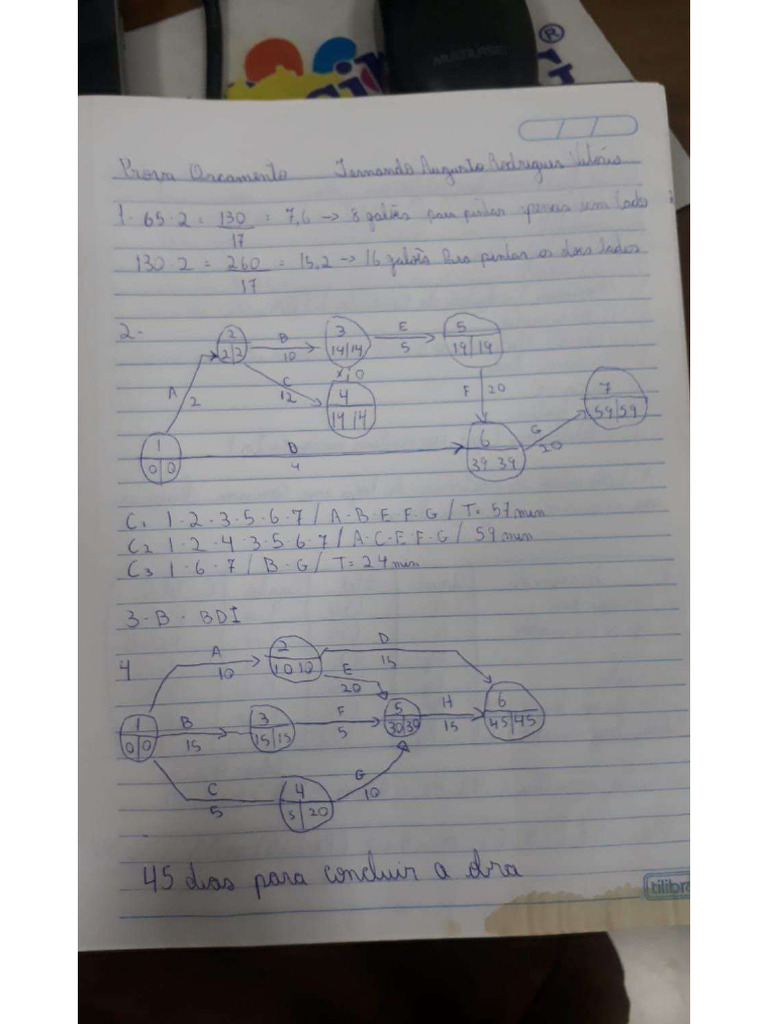 MULTILASER
®
Prova Orcamento Fernando Augusto Rodrigues
1. 65 . 2 = 130 = 7,6 → 8 galões para pintar apenas um lado
17
130 . 2 = 260 = 15,2 → 16 galões Para pintar os dois lados
17
2-
2
2 2
B
10
3
14|14
E
5
5
19|19
A
2
C
12
0
4
14 14
F 20
7
59|59
1
0 0
D
4
6
39 39
G
20
C1 1 . 2 . 3 . 5 . 6 . 7 / A . B . E . F . G / T = 57 min
C2 1 . 2 . 4 . 3 . 5 . 6 . 7 / A . C . E . F . G / 59 min
C3 1 . 6 . 7 / B . G / T = 24 min
3 - B - BDI
4
A
10
2
10 10
D
15
E
20
1
0 0
B
15
3
15|15
F
5
5
30|30
H
15
6
45|45
C
5
4
5 | 20
G
10
45 dias para concluir a obra
tilibra